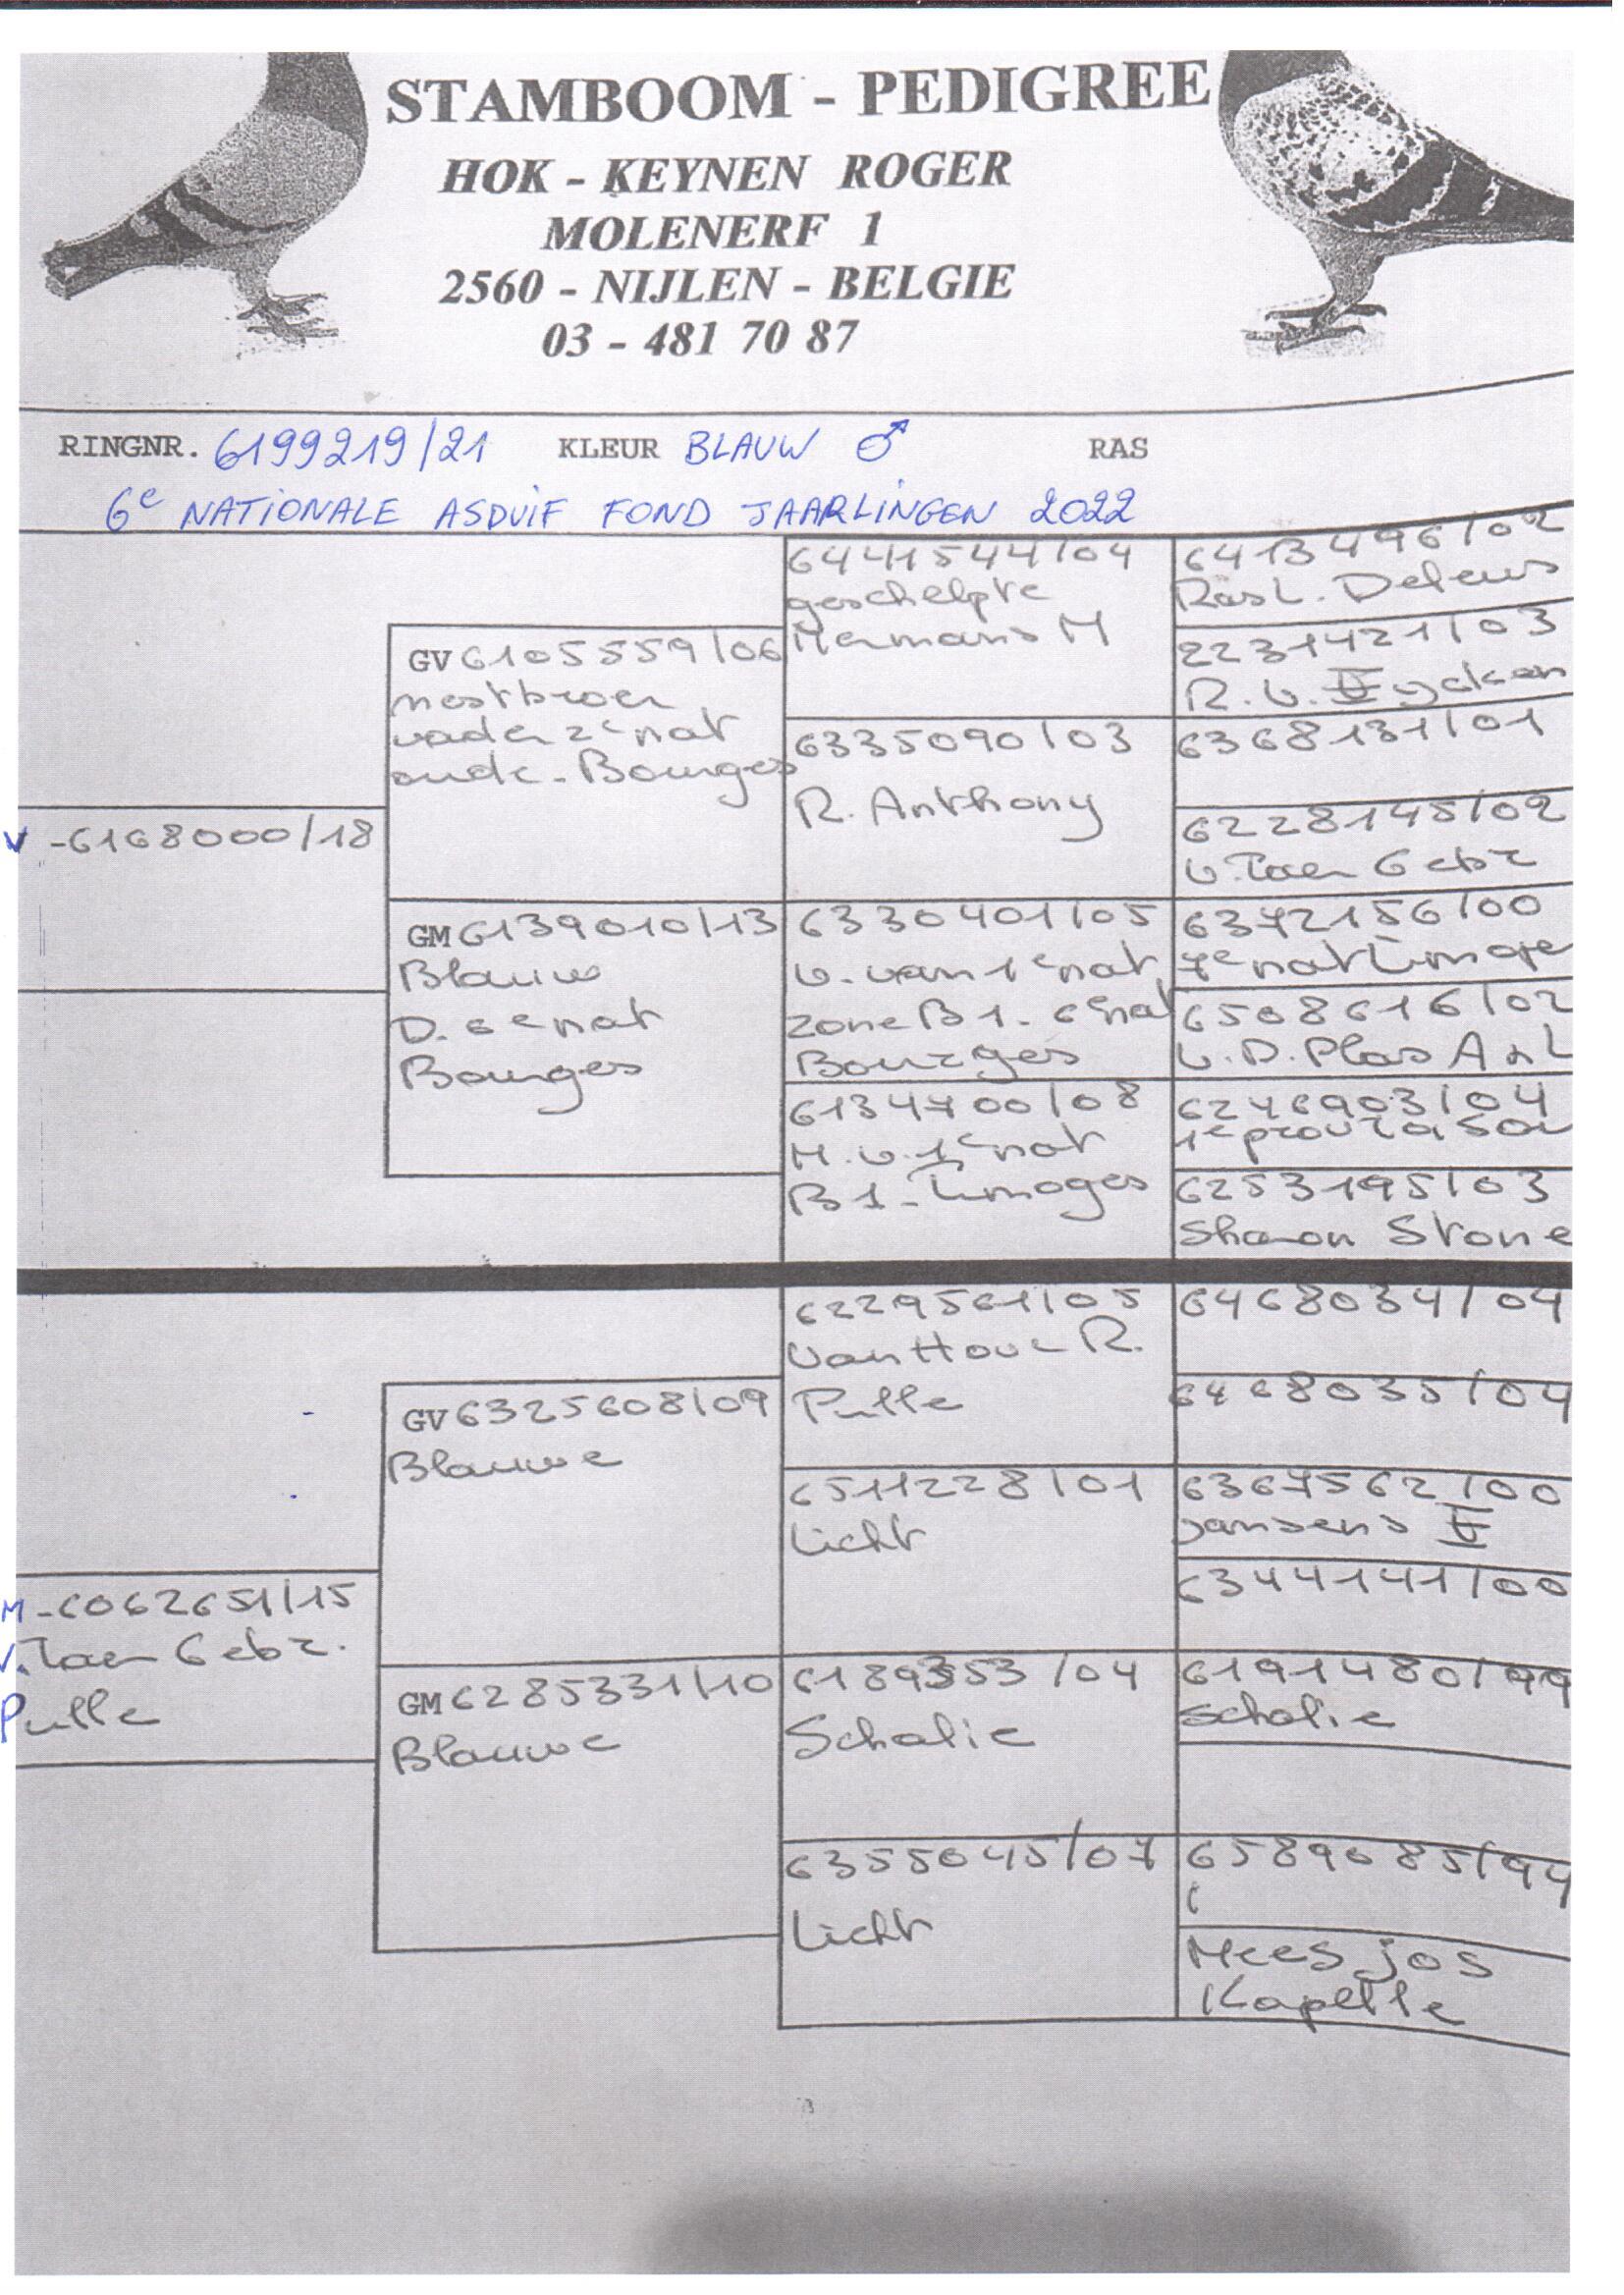 STAMBOOM - PEDIGREE
HOK - KEYNEN ROGER
MOLENERF 1
2560 - NIJLEN - BELGIE
03 - 481 70 87
RINGNR. 6199219/21 KLEUR BLAUW ♂ RAS
6e NATIONALE ASDUIF FOND JAARLINGEN 2022
V -6168000/18
GV 6105559/06
nestbroer
vader 2e nat
oude - Bourges
GM 6139010/13
Blauw
D. 6e nat
Bourges
6441544/04
geschelpte
Hermans M
6335090/03
R. Anthony
6330401/05
v. van 1e nat
zone B1 - 6e nat
Bourges
6134700/08
M.v. 1e nat
B1 - Limoges
6413496/02
Ras L.
2231421/03
R. v. Eycken
6368131/01
6228145/02
v. Taen Gebr
6372156/00
7e nat Limoge
6508616/02
v. D. Plas A n L
6246903/04
1e prov La Sou
6253195/03
Sharon Stone
M -6062651/15
V. Taen Gebr.
Pulle
GV 6325608/09
Blauwe
GM 6285331/10
Blauwe
6229561/05
Van Hove R.
Pulle
6511228/01
Licht
6189353/04
Schalie
6355045/07
Licht
6468034/04
6468035/04
6367562/00
Jansens
6344141/00
6191480/99
Schalie
6589085/94
Mees Jos
Kapelle